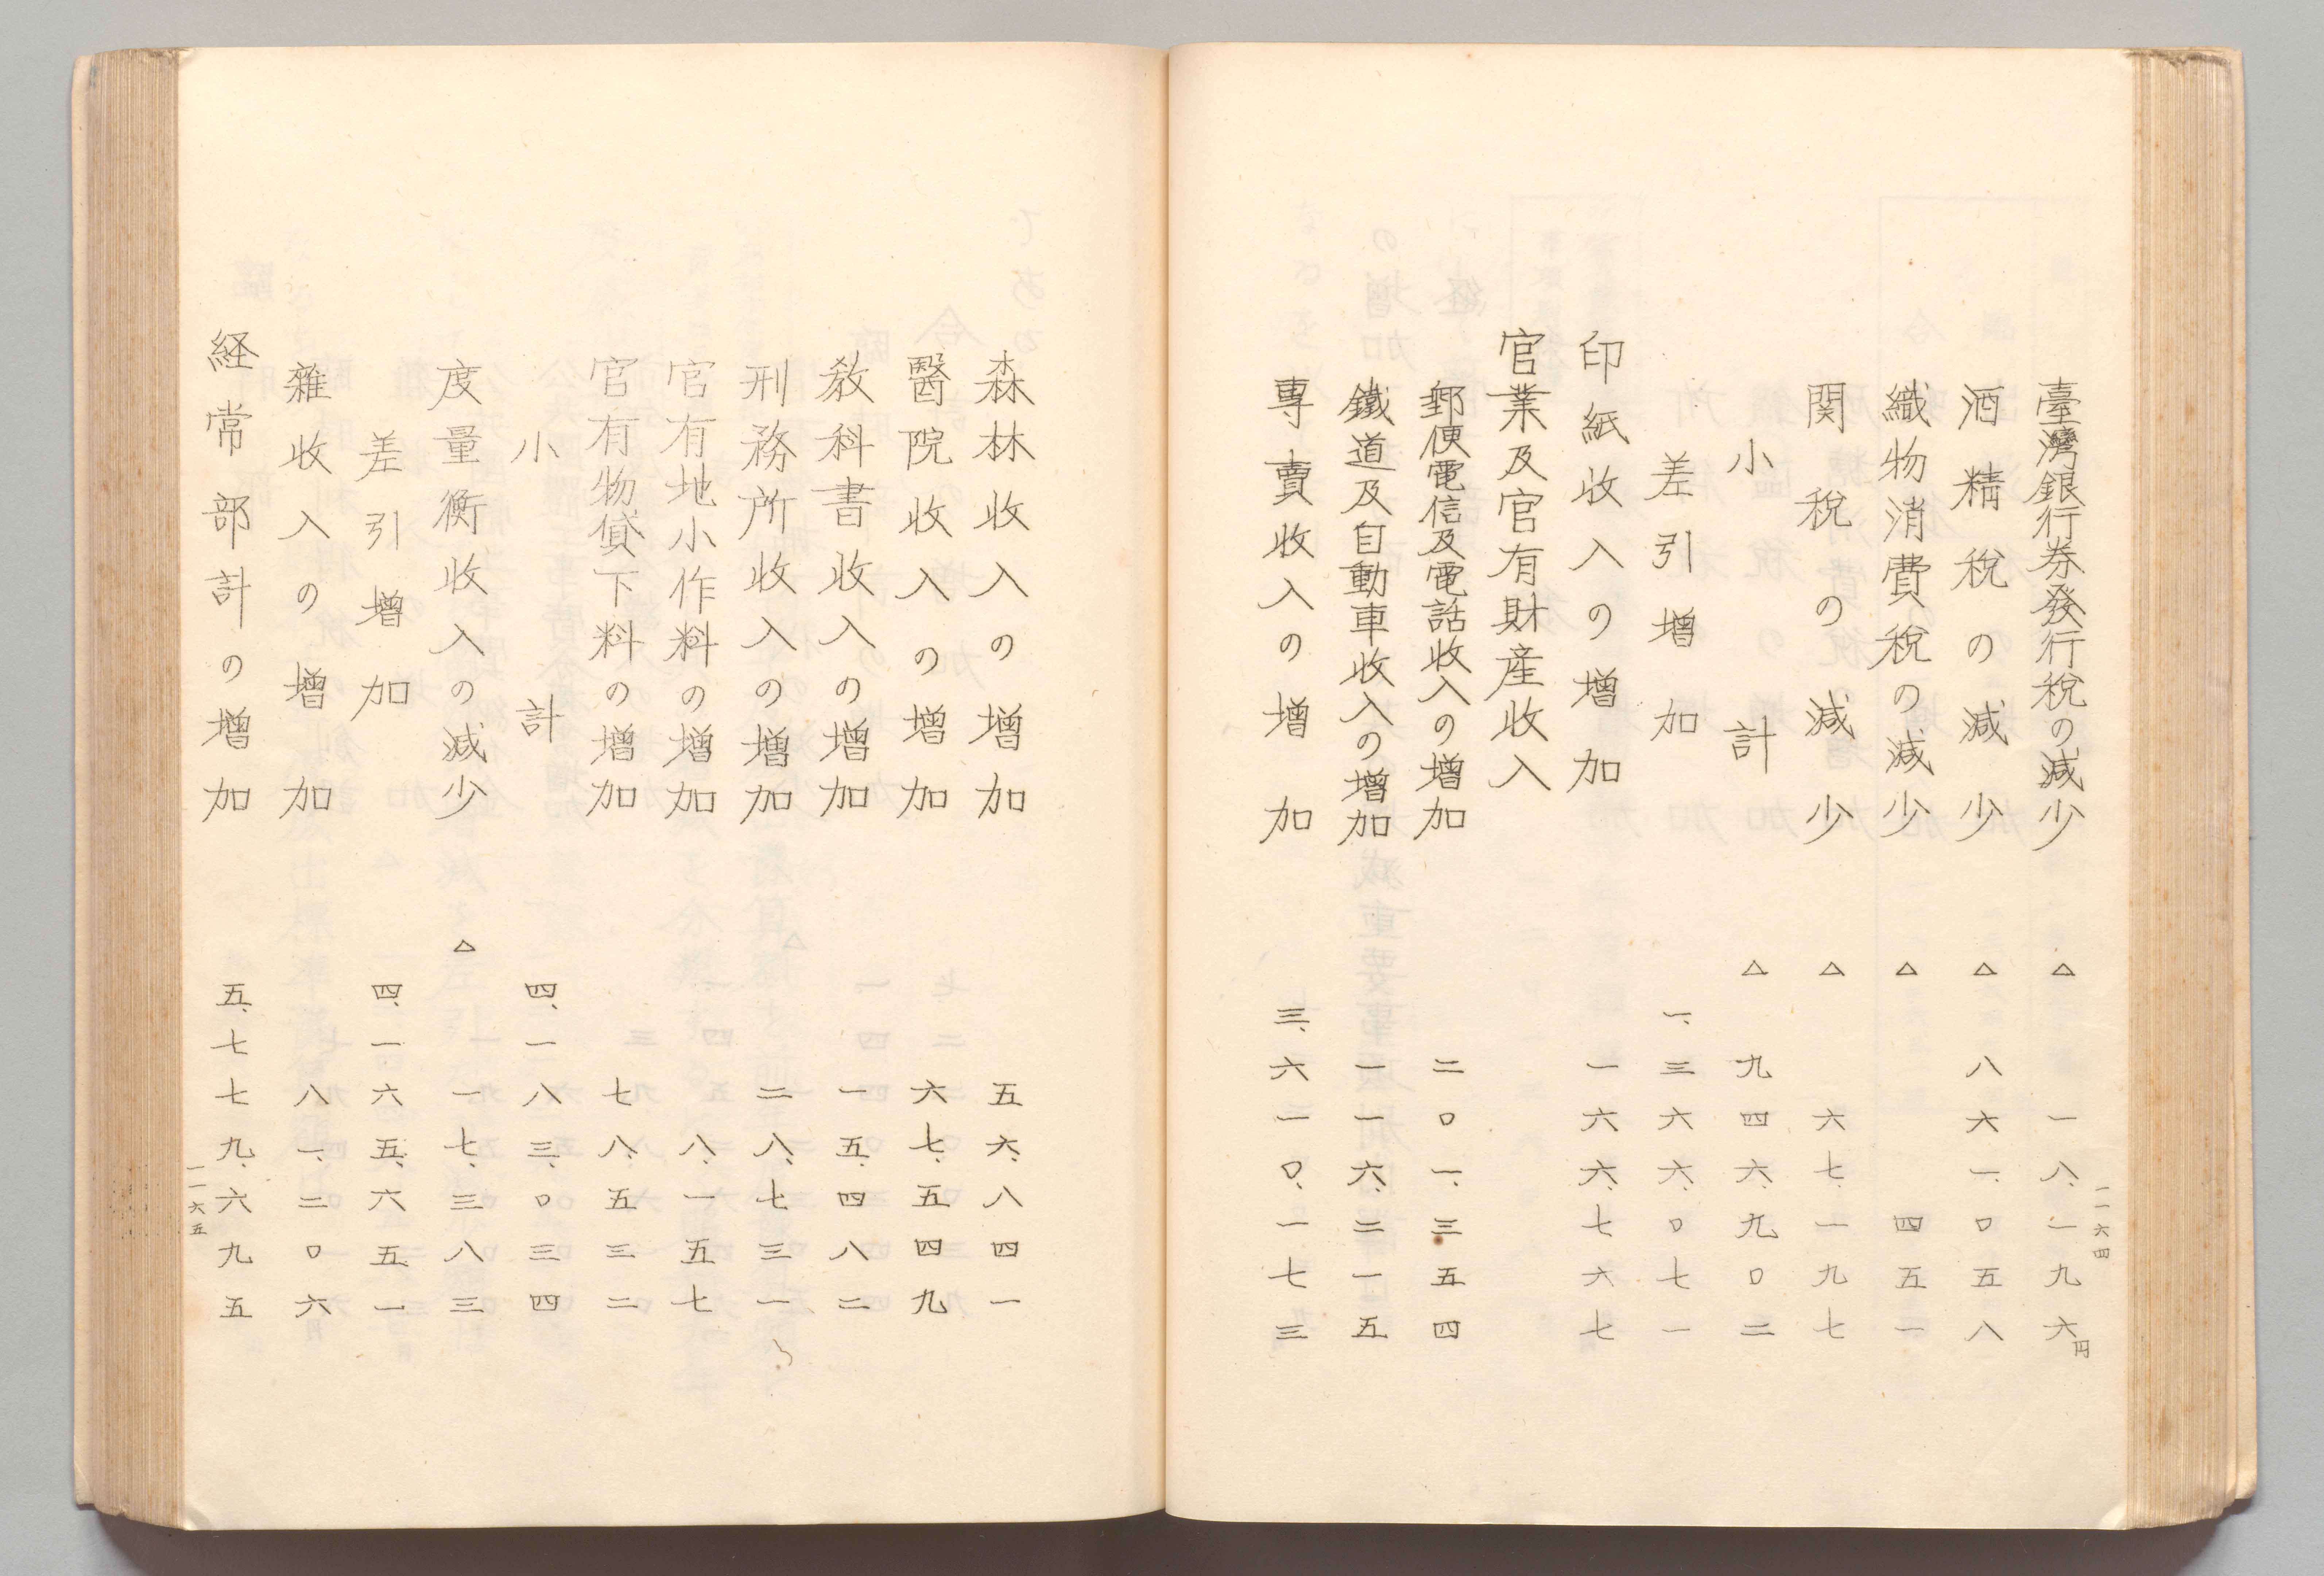 一一六四
臺灣銀行券發行税の減少 △ 一八、一九六円
酒精税の減少 △ 八六一、〇五八
織物消費税の減少 △ 四五一
関税の減少 △ 六七、一九七
小計 △ 九四六、九〇二
差引増加 一、三六六、〇七一
印紙收入の増加 一六六、七六七
官業及官有財産收入
郵便電信及電話收入の増加 二〇一、三五四
鐵道及自動車收入の増加 一一六、二一五
專賣收入の増加 三、六一〇、一七三
森林收入の増加 五六、八四一
醫院收入の増加 六七、五四九
教科書收入の増加 一五、四八二
刑務所收入の増加 二八、七三一
官有地小作料の増加 八、一五七
官有物貸下料の増加 七八、五三二
小計 四、一八三、〇三四
度量衡收入の減少 △ 一七、三八三
差引増加 四、一六五、六五一
雜收入の増加 八一、二〇六
経常部計の増加 五、七七九、六九五
一一六五